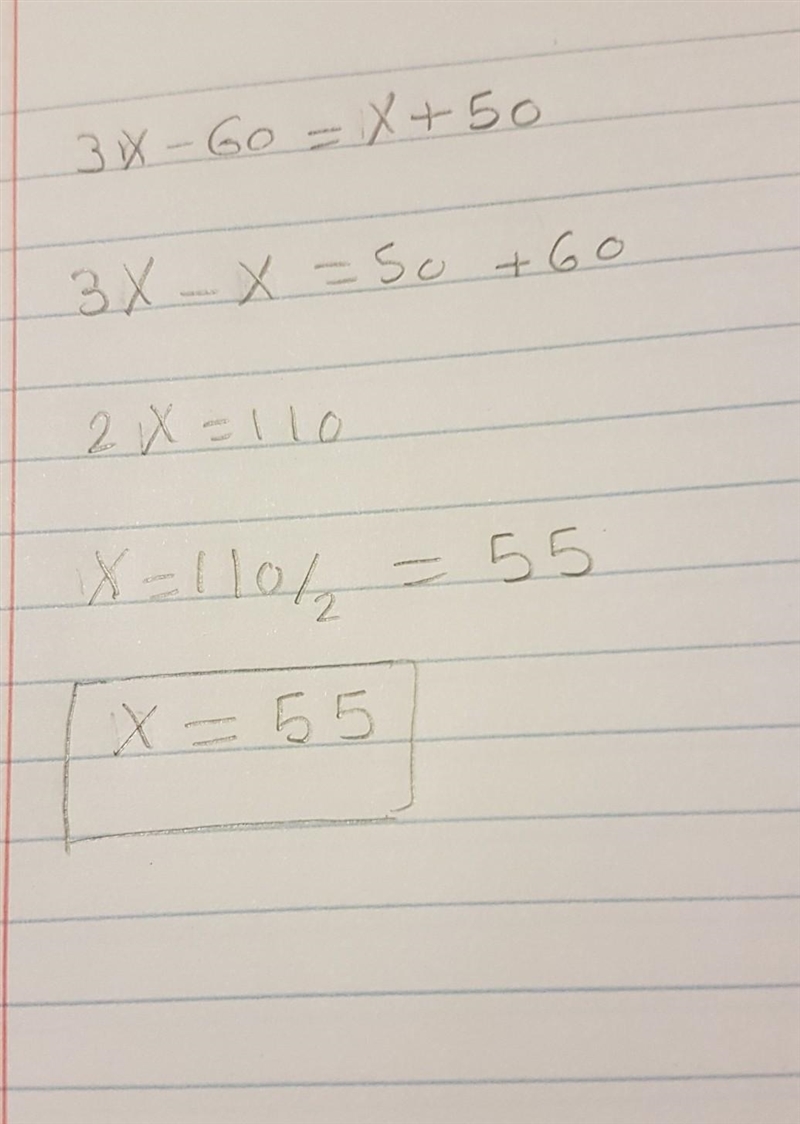 3x - 60 = x + 50
3x - x = 50 + 60
2x = 110
x = 110/2 = 55
x = 55